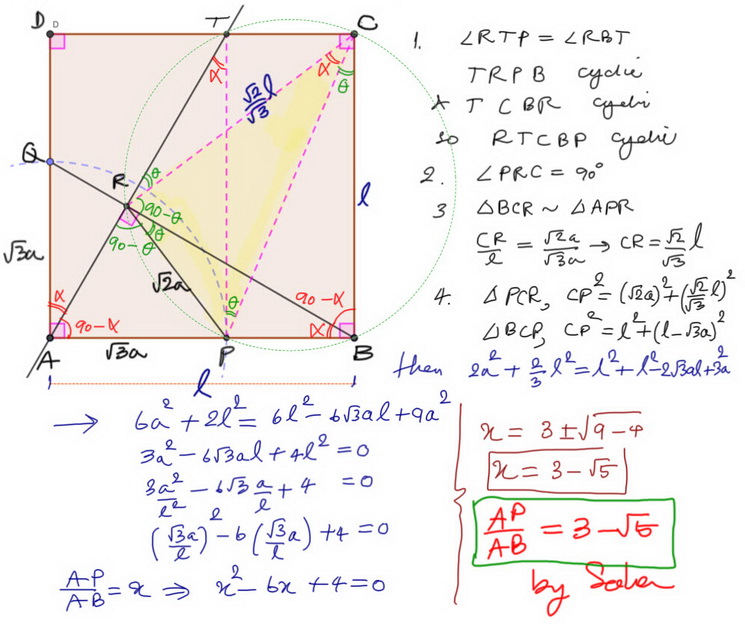 D D T C
α α θ
√2/√3 l
Q R θ
90-θ
90-θ θ
l
√3a √2a
α θ 90-α
90-α α
A √3a P B
l
1. ∠RTP = ∠RBT
TRPB cyclic
∧ TCBR cyclic
so RTCBP cyclic
2. ∠PRC = 90°
3 △BCR ~ △APR
CR/l = √2a/√3a → CR = √2/√3 l
4. △PCR, CP² = (√2a)² + (√2/√3 l)²
△BCP, CP² = l² + (l-√3a)²
then 2a² + 2/3 l² = l² + l² - 2√3al + 3a²
→ 6a² + 2l² = 6l² - 6√3al + 9a²
3a² - 6√3al + 4l² = 0
3a²/l² - 6√3 a/l + 4 = 0
(√3a/l)² - 6(√3a/l) + 4 = 0
AP/AB = x ⇒ x² - 6x + 4 = 0
x = 3 ± √9-4
x = 3 - √5
AP/AB = 3 - √5
by Saba